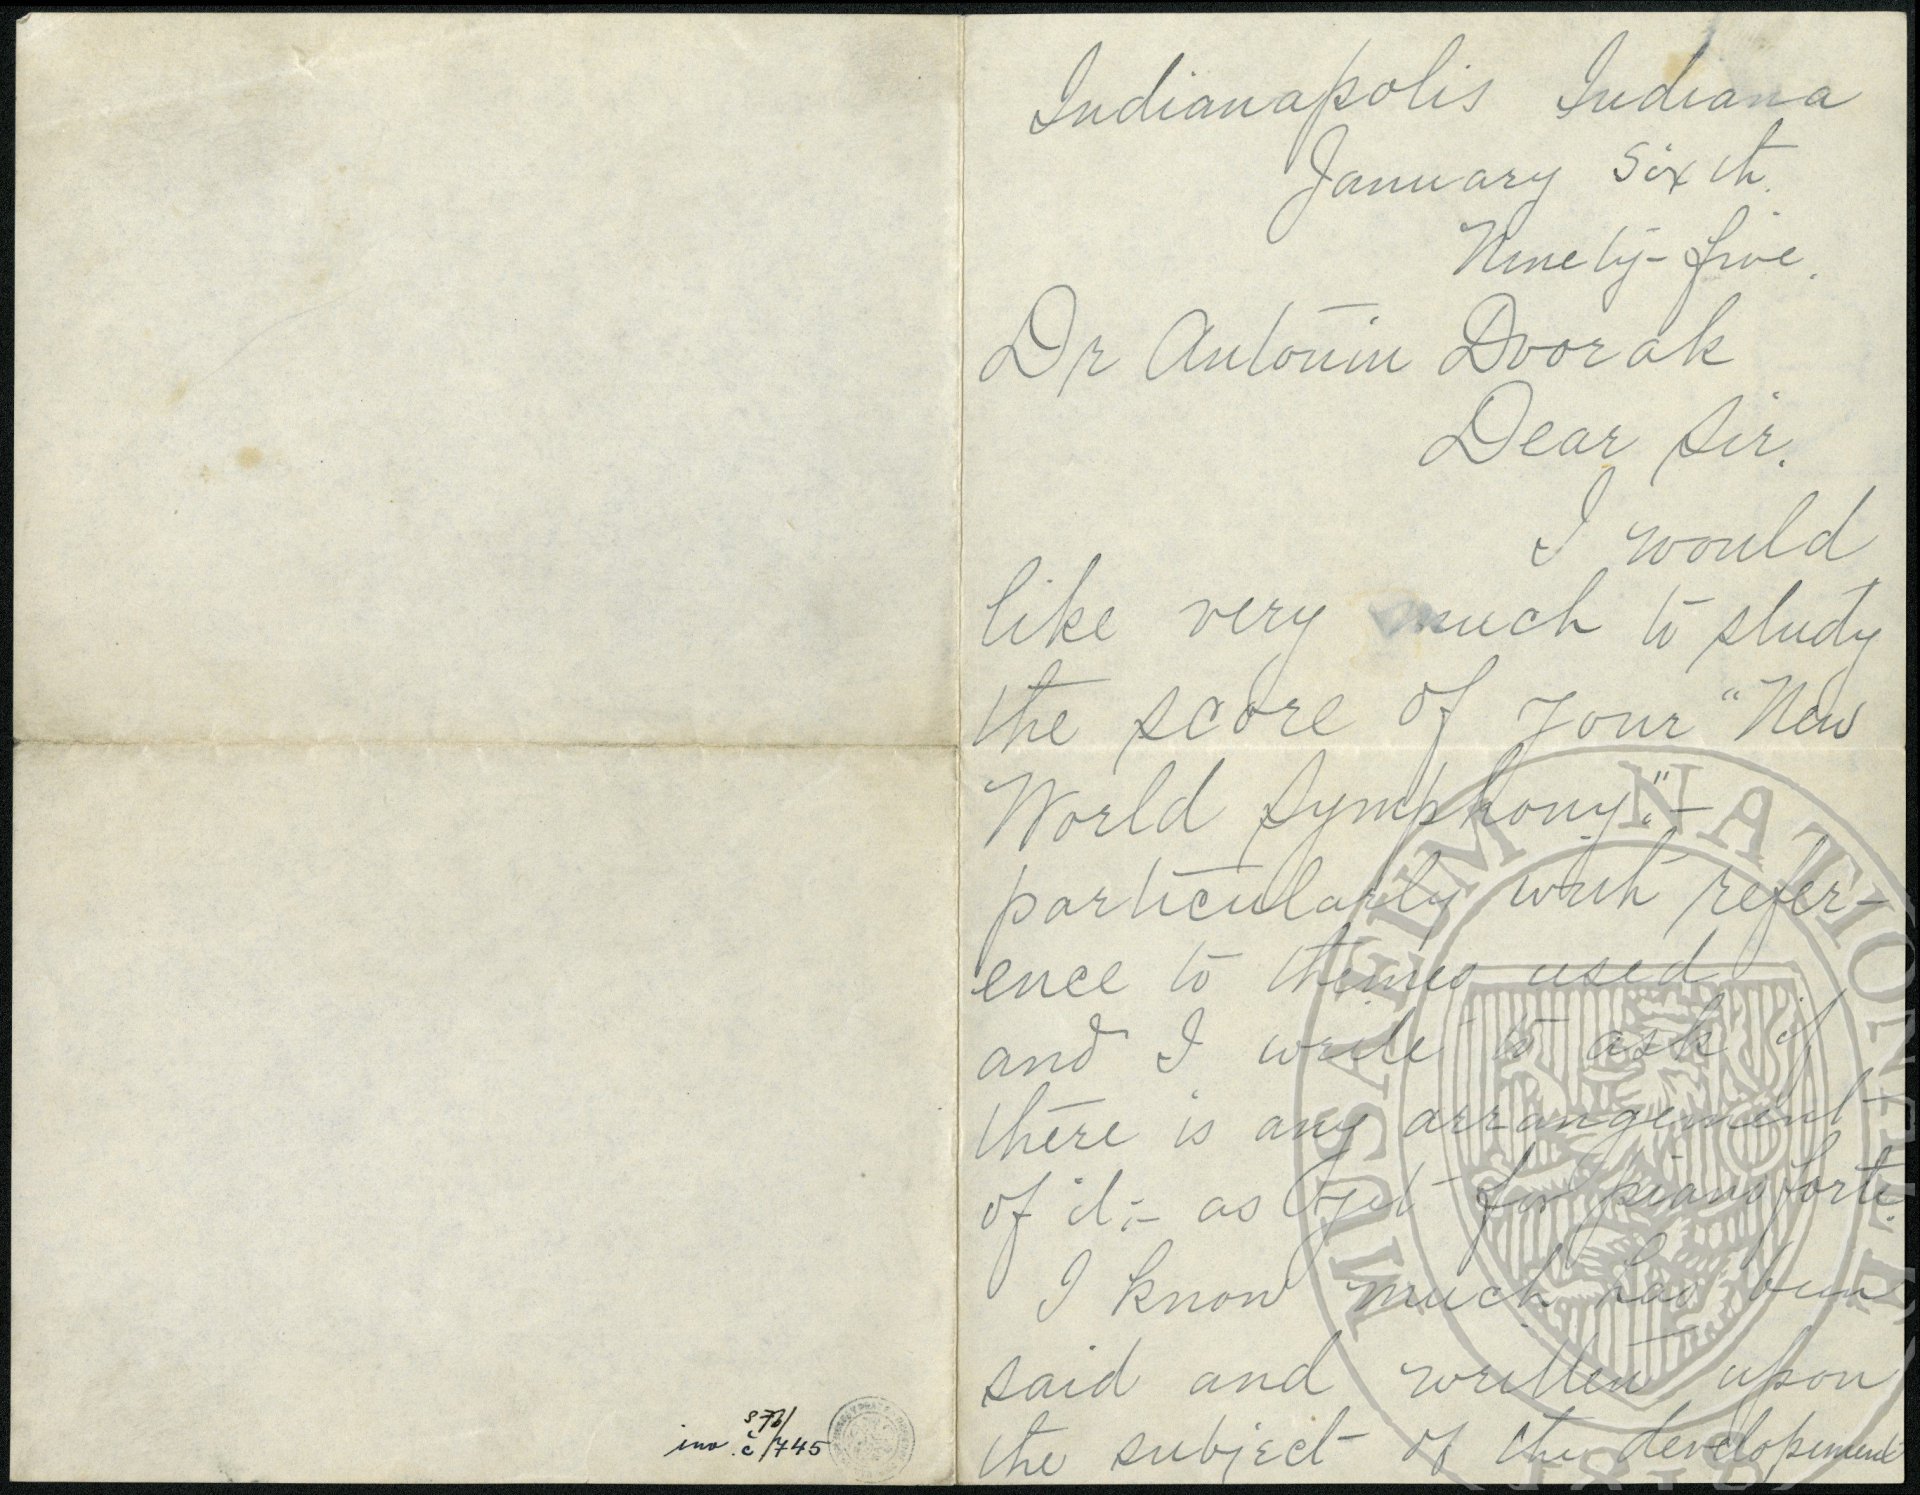 Indianapolis Indiana
January Sixth.
Ninety-five.
Dr Antonin Dvorak
Dear Sir.
I would
like very much to study
the score of your "New
World Symphony."-
particularly with refer-
ence to themes used
and I write to ask if
there is any arrangement
of it;- as yet for pianoforte.
I know much has been
said and written upon
the subject of the developement
inv. č /745
MUSAEUM NATIONALE
1818